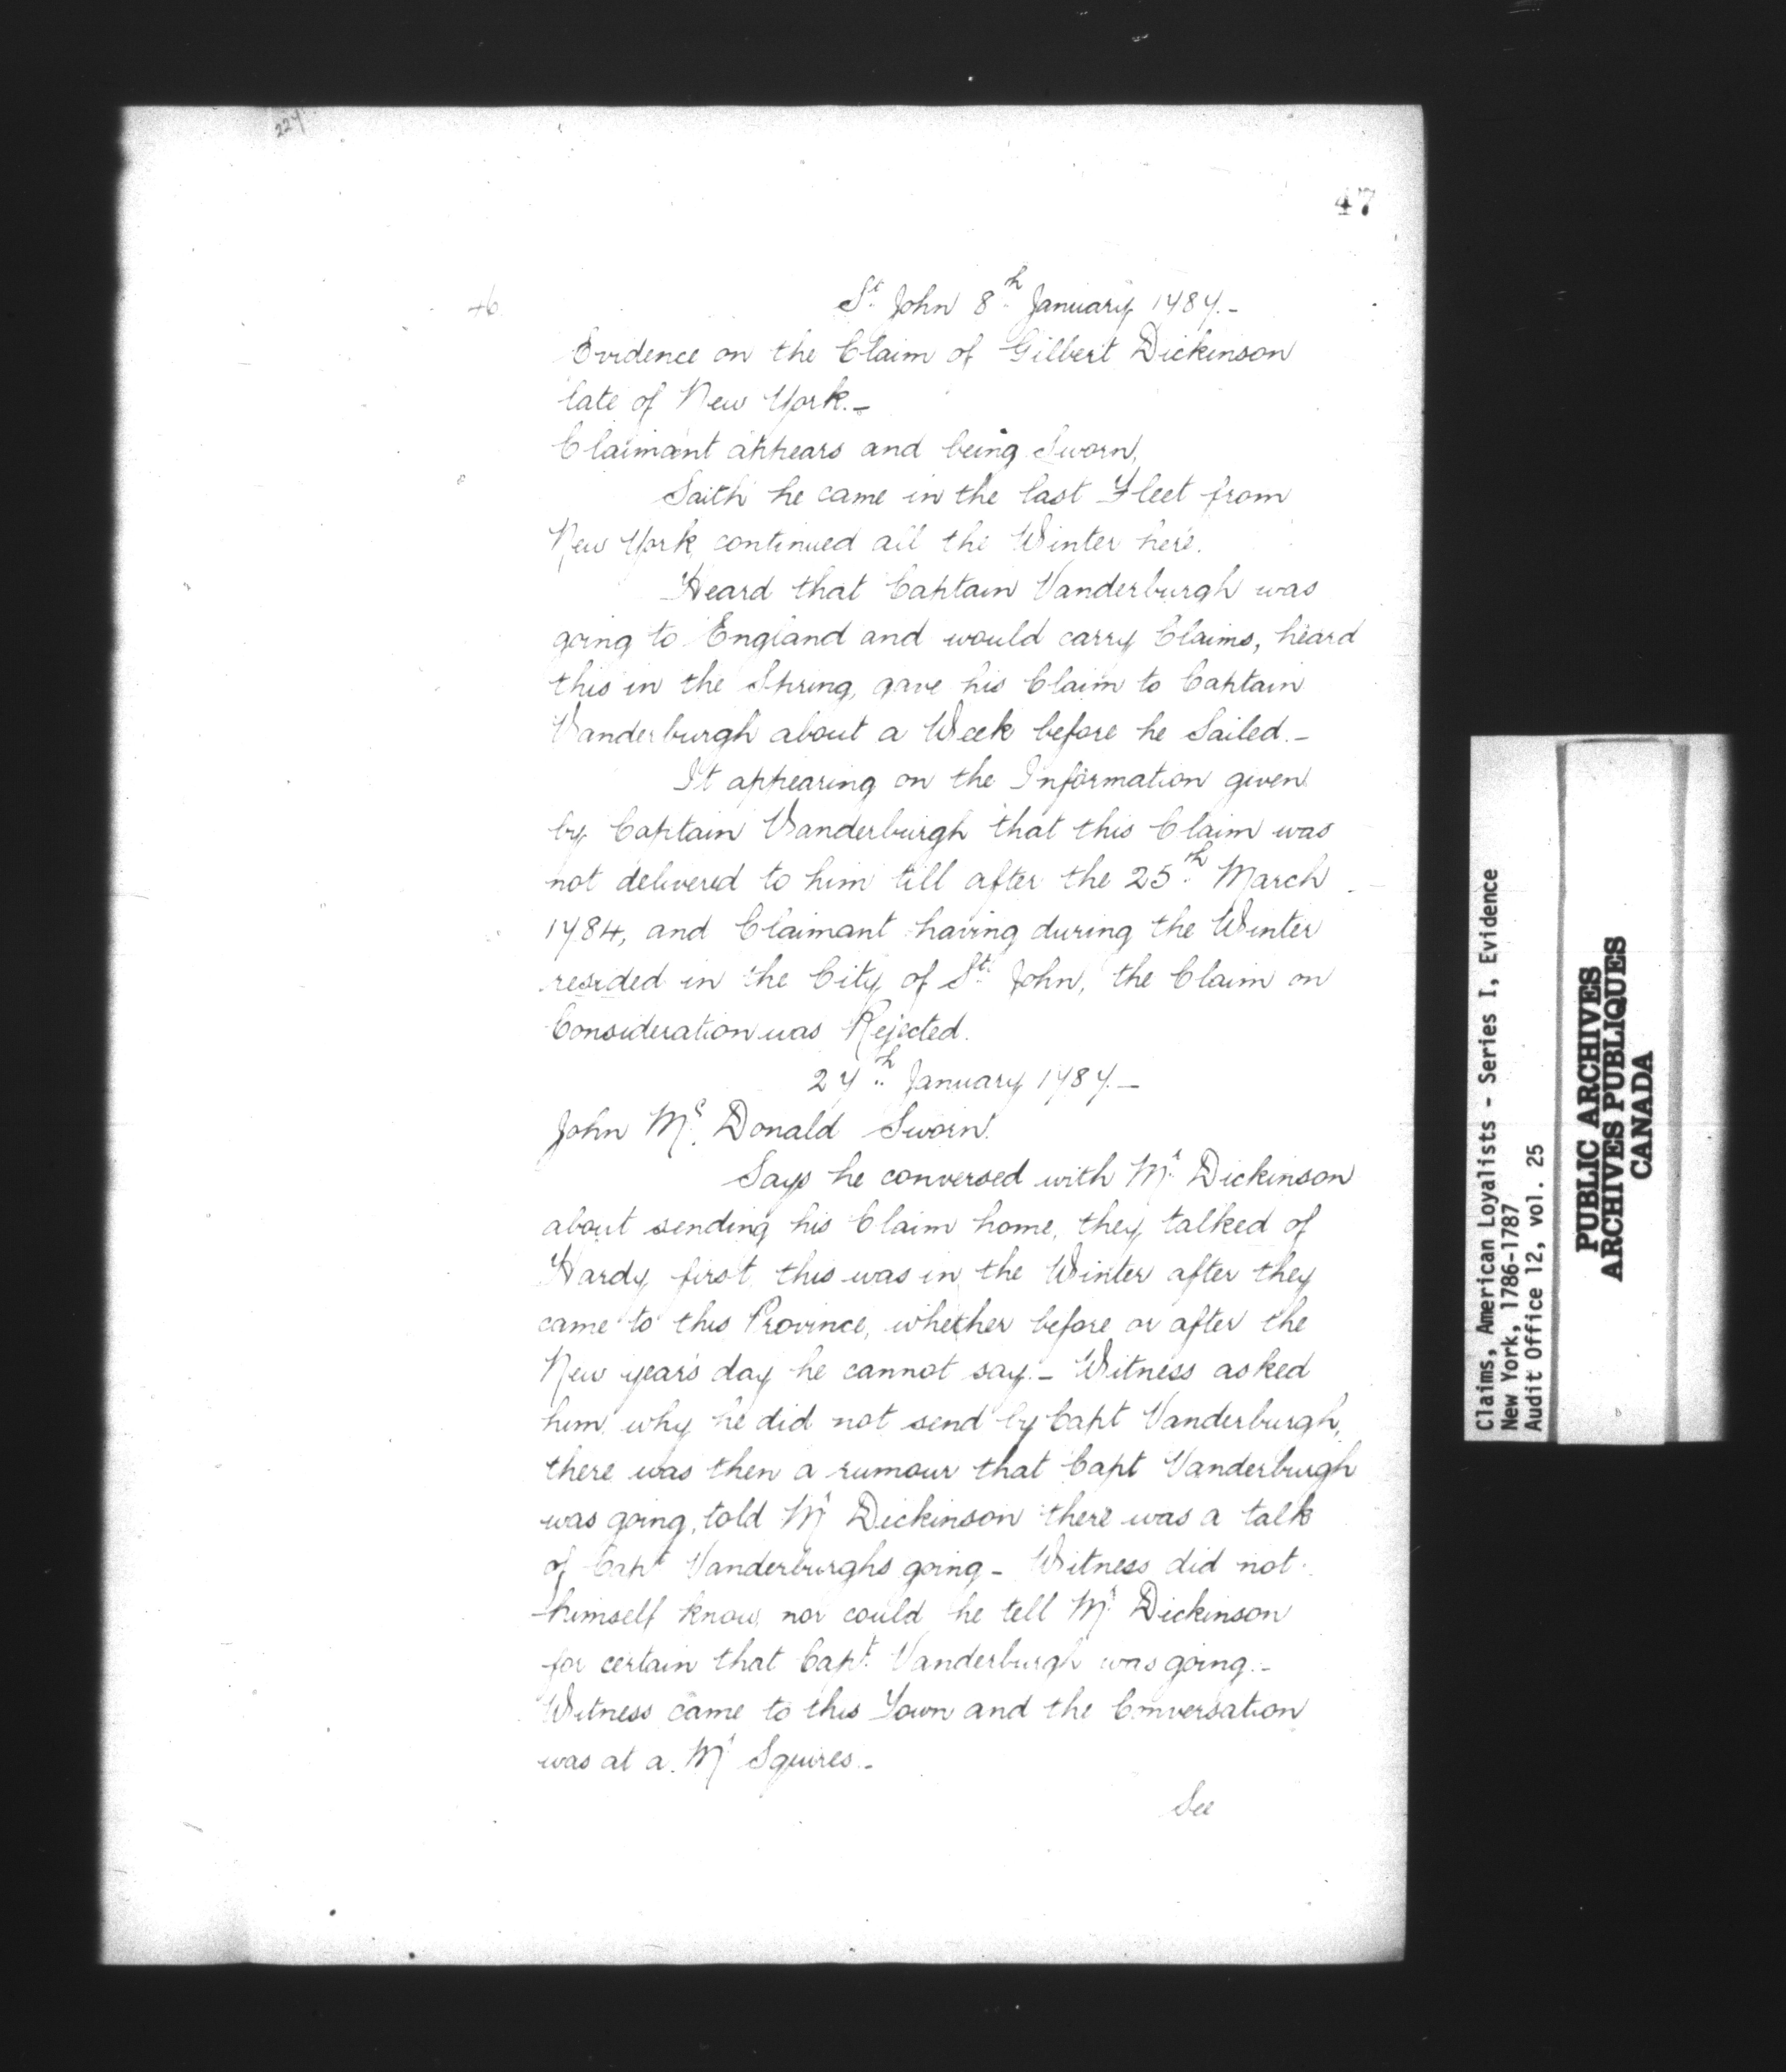 224
47
46
St. John 8th January 1787.-
Evidence on the Claim of Gilbert Dickinson
late of New York.-
Claimant appears and being Sworn,
Saith he came in the last Fleet from
New York, continued all the Winter here.
Heard that Captain Vanderburgh was
going to England and would carry Claims, heard
this in the Spring, gave his Claim to Captain
Vanderburgh about a Week before he Sailed.-
It appearing on the Information given
by Captain Vanderburgh that this Claim was
not delivered to him till after the 25th March
1784, and Claimant having during the Winter
resided in the City of St. John, the Claim on
Consideration was Rejected.
27th January 1787.-
John Mc. Donald Sworn.
Says he conversed with Mr. Dickinson
about sending his Claim home, they talked of
Hardy first, this was in the Winter after they
came to this Province, whether before or after the
New year's day he cannot say.- Witness asked
him why he did not send by Capt Vanderburgh,
there was then a rumour that Capt Vanderburgh
was going, told Mr Dickinson there was a talk
of Capt Vanderburghs going - Witness did not
himself know, nor could he tell Mr. Dickinson
for certain that Capt. Vanderburgh was going.-
Witness came to this Town and the Conversation
was at a Mr Squires.-
See
Claims, American Loyalists - Series I, Evidence
New York, 1786-1787
Audit Office 12, vol. 25
PUBLIC ARCHIVES
ARCHIVES PUBLIQUES
CANADA